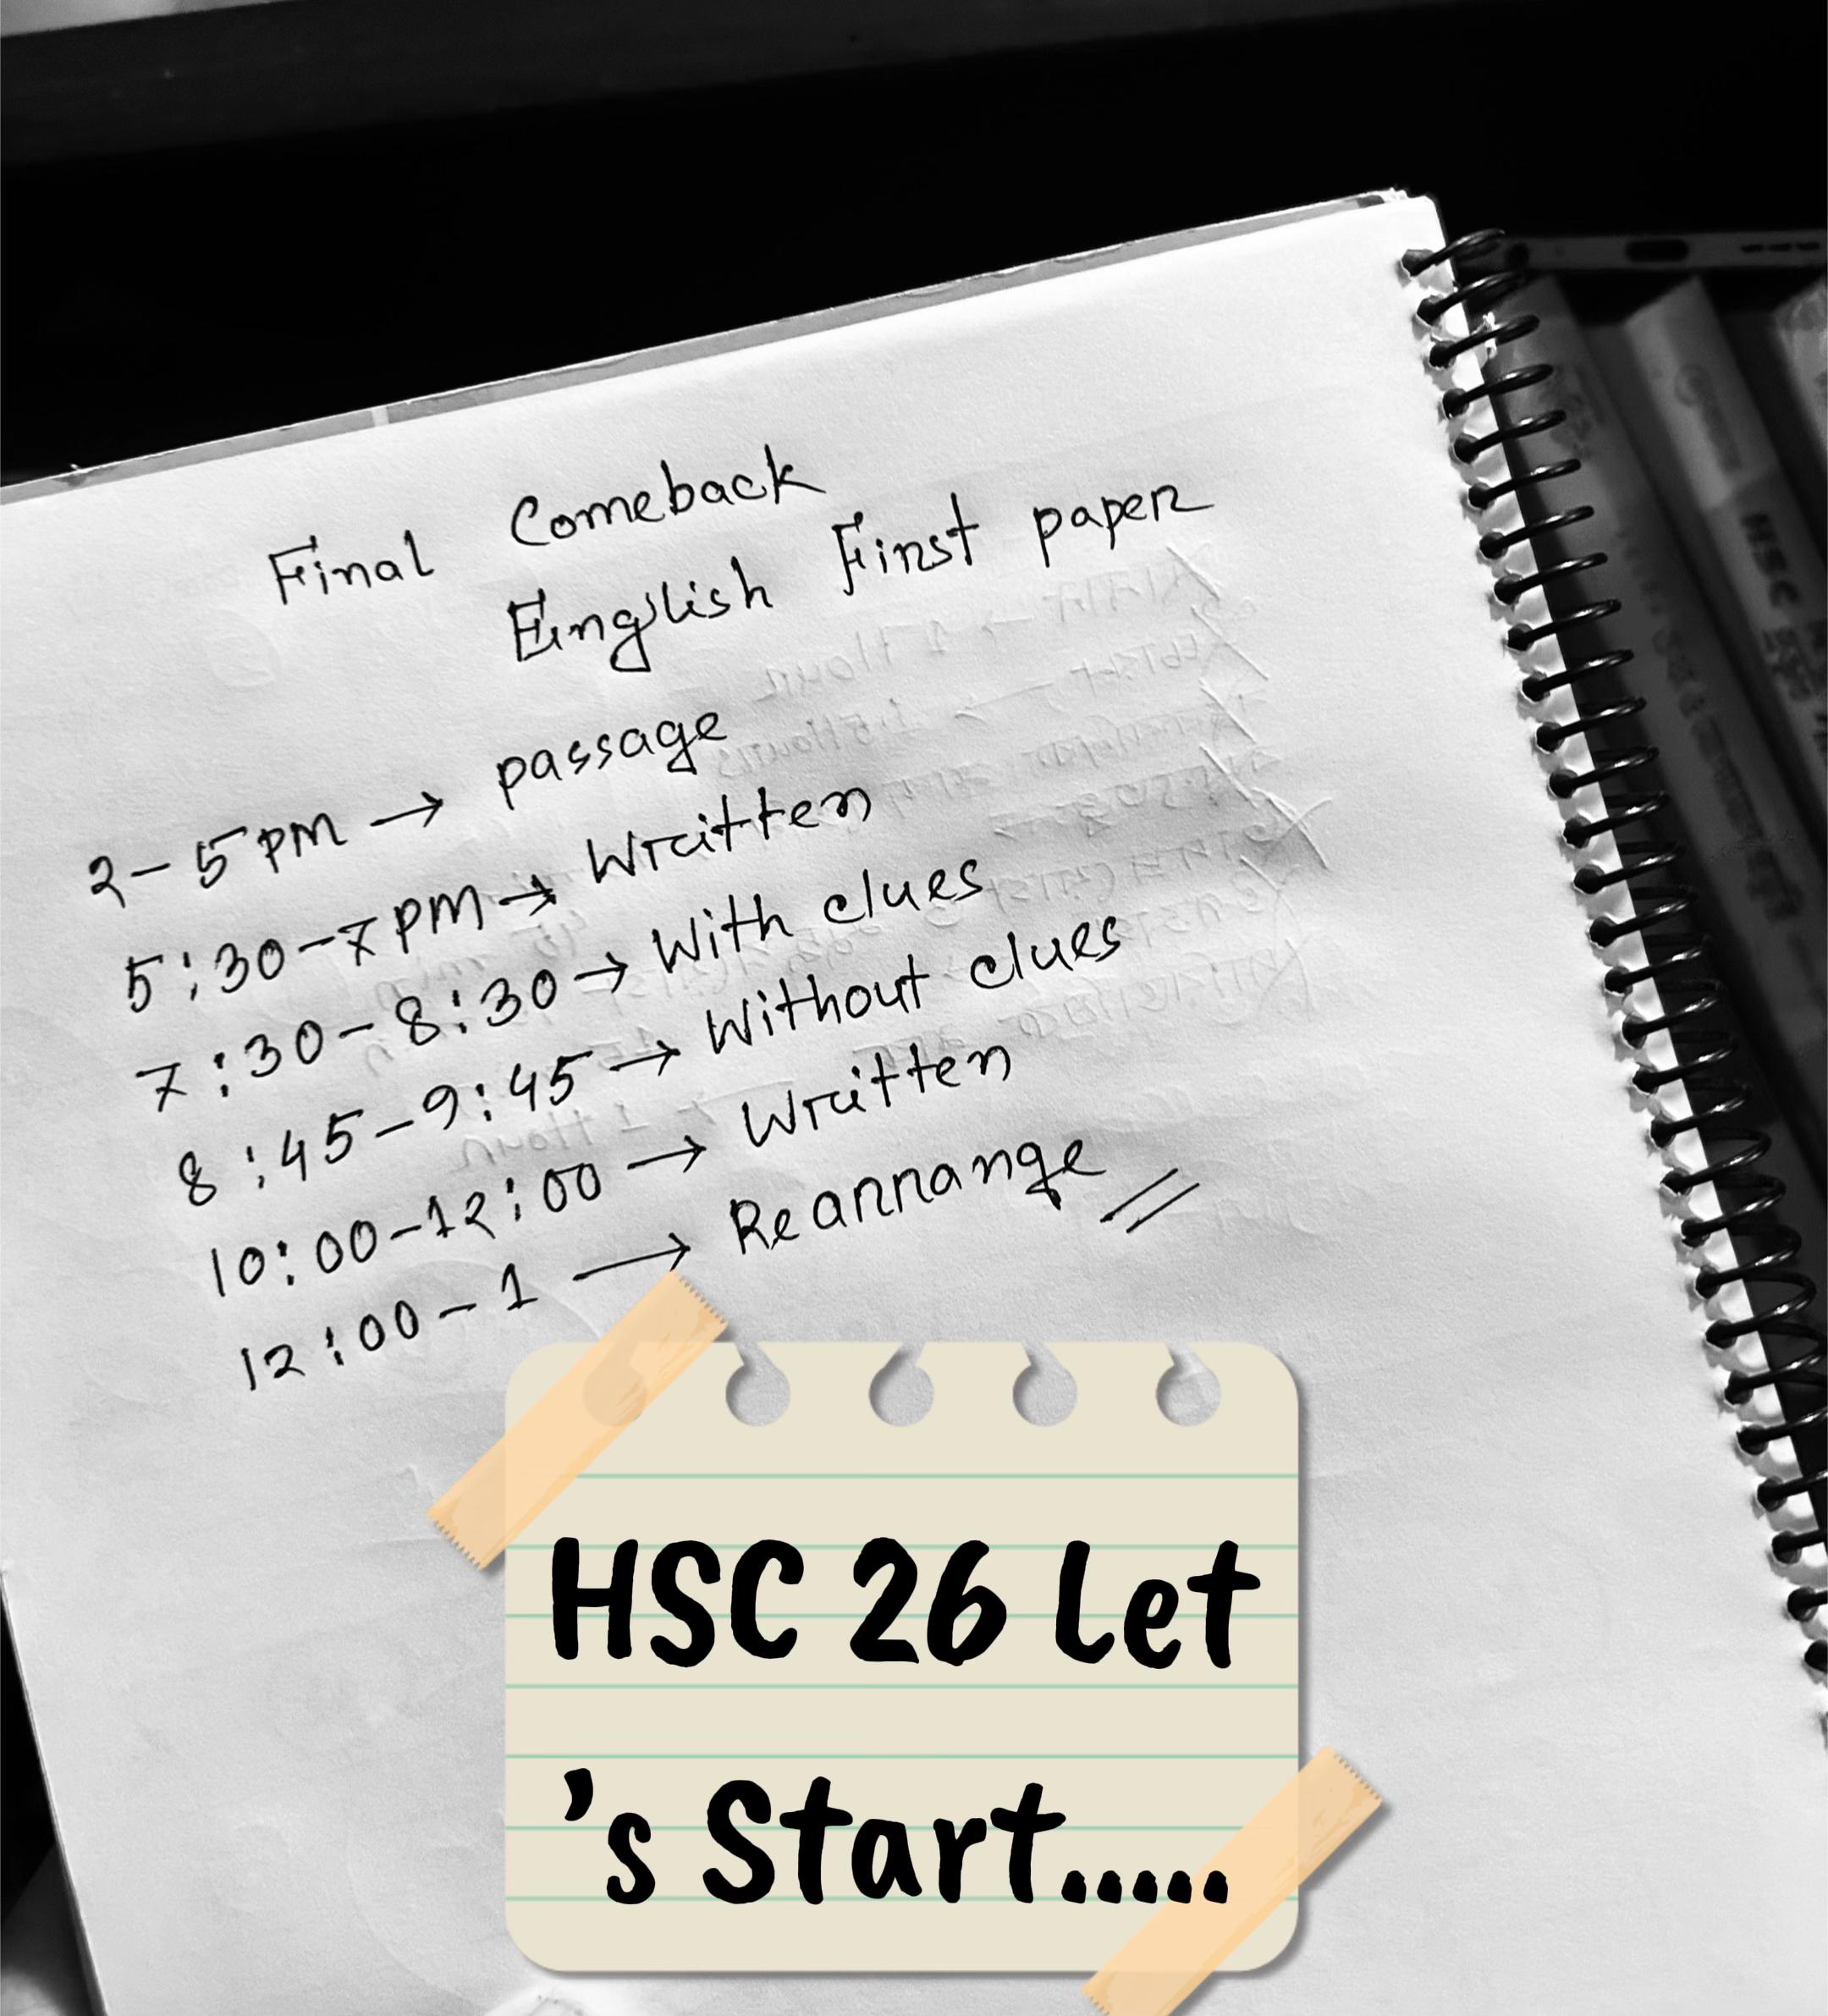 Final Comeback
English First paper
2-5 pm → passage
5:30-7 pm → Written
7:30-8:30 → With clues
8:45-9:45 → Without clues
10:00-12:00 → Written
12:00-1 → Rearrange
HSC
HSC 26 Let
's Start.....